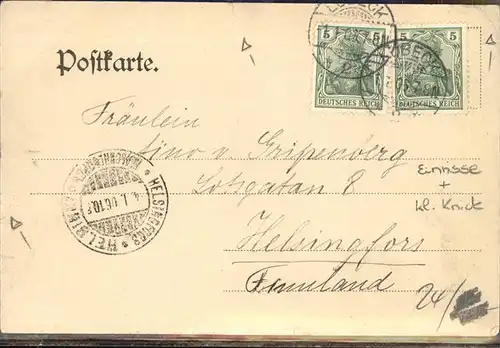 LÜBECK
5 5
DEUTSCHES REICH
5 5
DEUTSCHES REICH
Postkarte.
Fräulein
Aino v. Gripenberg
Lotsgatan 8
Helsingfors
Finnland
HELSINGFORS
4.I.06.10
Einrisse
+
kl. Knick
24/